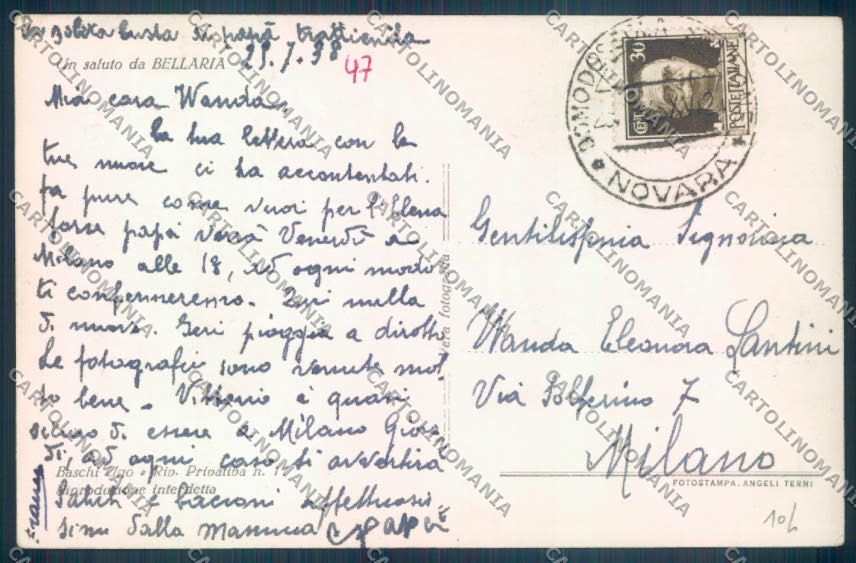 In solita busta di papà trattienila
Un saluto da BELLARIA 29.7.38
47
Mia cara Wanda
La tua lettera con le
tue nuove ci ha accontentati.
fa pure come vuoi per l'Elena
forse papà verrà Venerdì a
Milano alle 18, ad ogni modo
ti confermeremo. Qui nulla
di nuovo. Ieri pioggia a dirotto
Le fotografie sono venute mol
to bene. Vittorio è quasi
sicuro di essere a Milano Giove
dì, ad ogni caso ti avvertirà
Baschi Ugo - Riv. Privativa n. 1
Riproduzione interdetta
Saluti e bacioni affettuosis
simi dalla mamma e papà
Franco
Vera fotografia
DOMODOSSOLA
NOVARA
CENT. 30
POSTE ITALIANE
Gentilissima Signorina
Wanda Eleonora Santini
Via Solferino 7
Milano
FOTOSTAMPA. ANGELI TERNI
10L
CARTOLINOMANIA